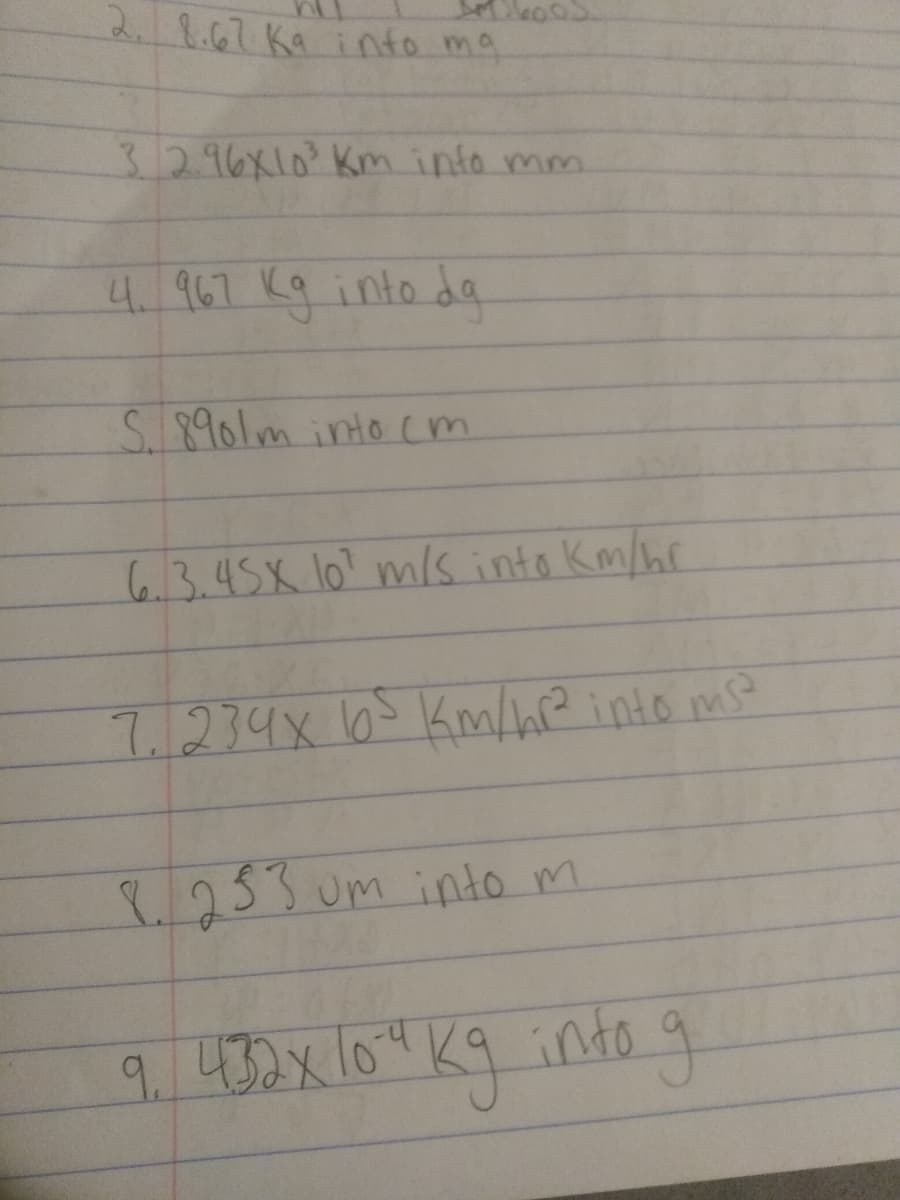 2. 8.67 Kg into mg
3. 2.96x10³ Km into mm
4. 967 Kg into dg
5. 8901m into cm
6. 3.45x 10⁷ m/s into Km/hr
7. 234x 10⁵ Km/hr² into ms²
8. 253 um into m
9. 432x10⁻⁴ Kg into g